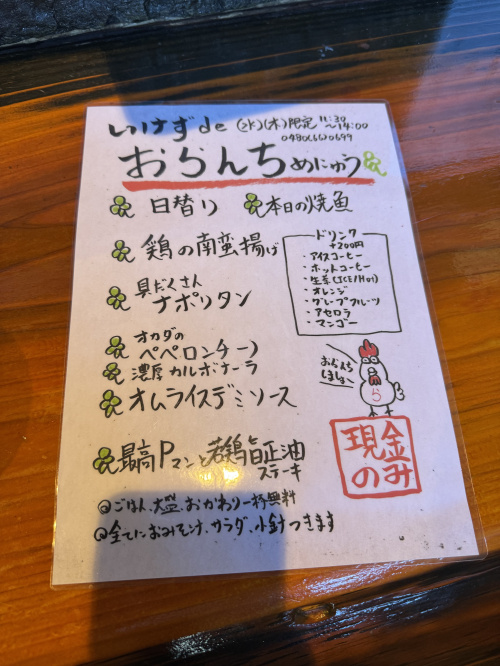 いけずde (水)(木)限定 11:30〜14:00
0480(66)0699
おらんちめにゅう
日替り 本日の焼魚
鶏の南蛮揚げ
具だくさん
ナポリタン
オカダの
ペペロンチーノ
濃厚カルボナーラ
オムライスデミソース
最高Pマンと若鶏旨正油
ステーキ
ドリンク
+200円
・アイスコーヒー
・ホットコーヒー
・生茶(ICE/Hot)
・オレンジ
・グレープフルーツ
・アセロラ
・マンゴー
おらんち
現金のみ
◎ごはん、大盛、おかわり一杯無料
◎全てにおみそ汁、サラダ、小鉢つきます